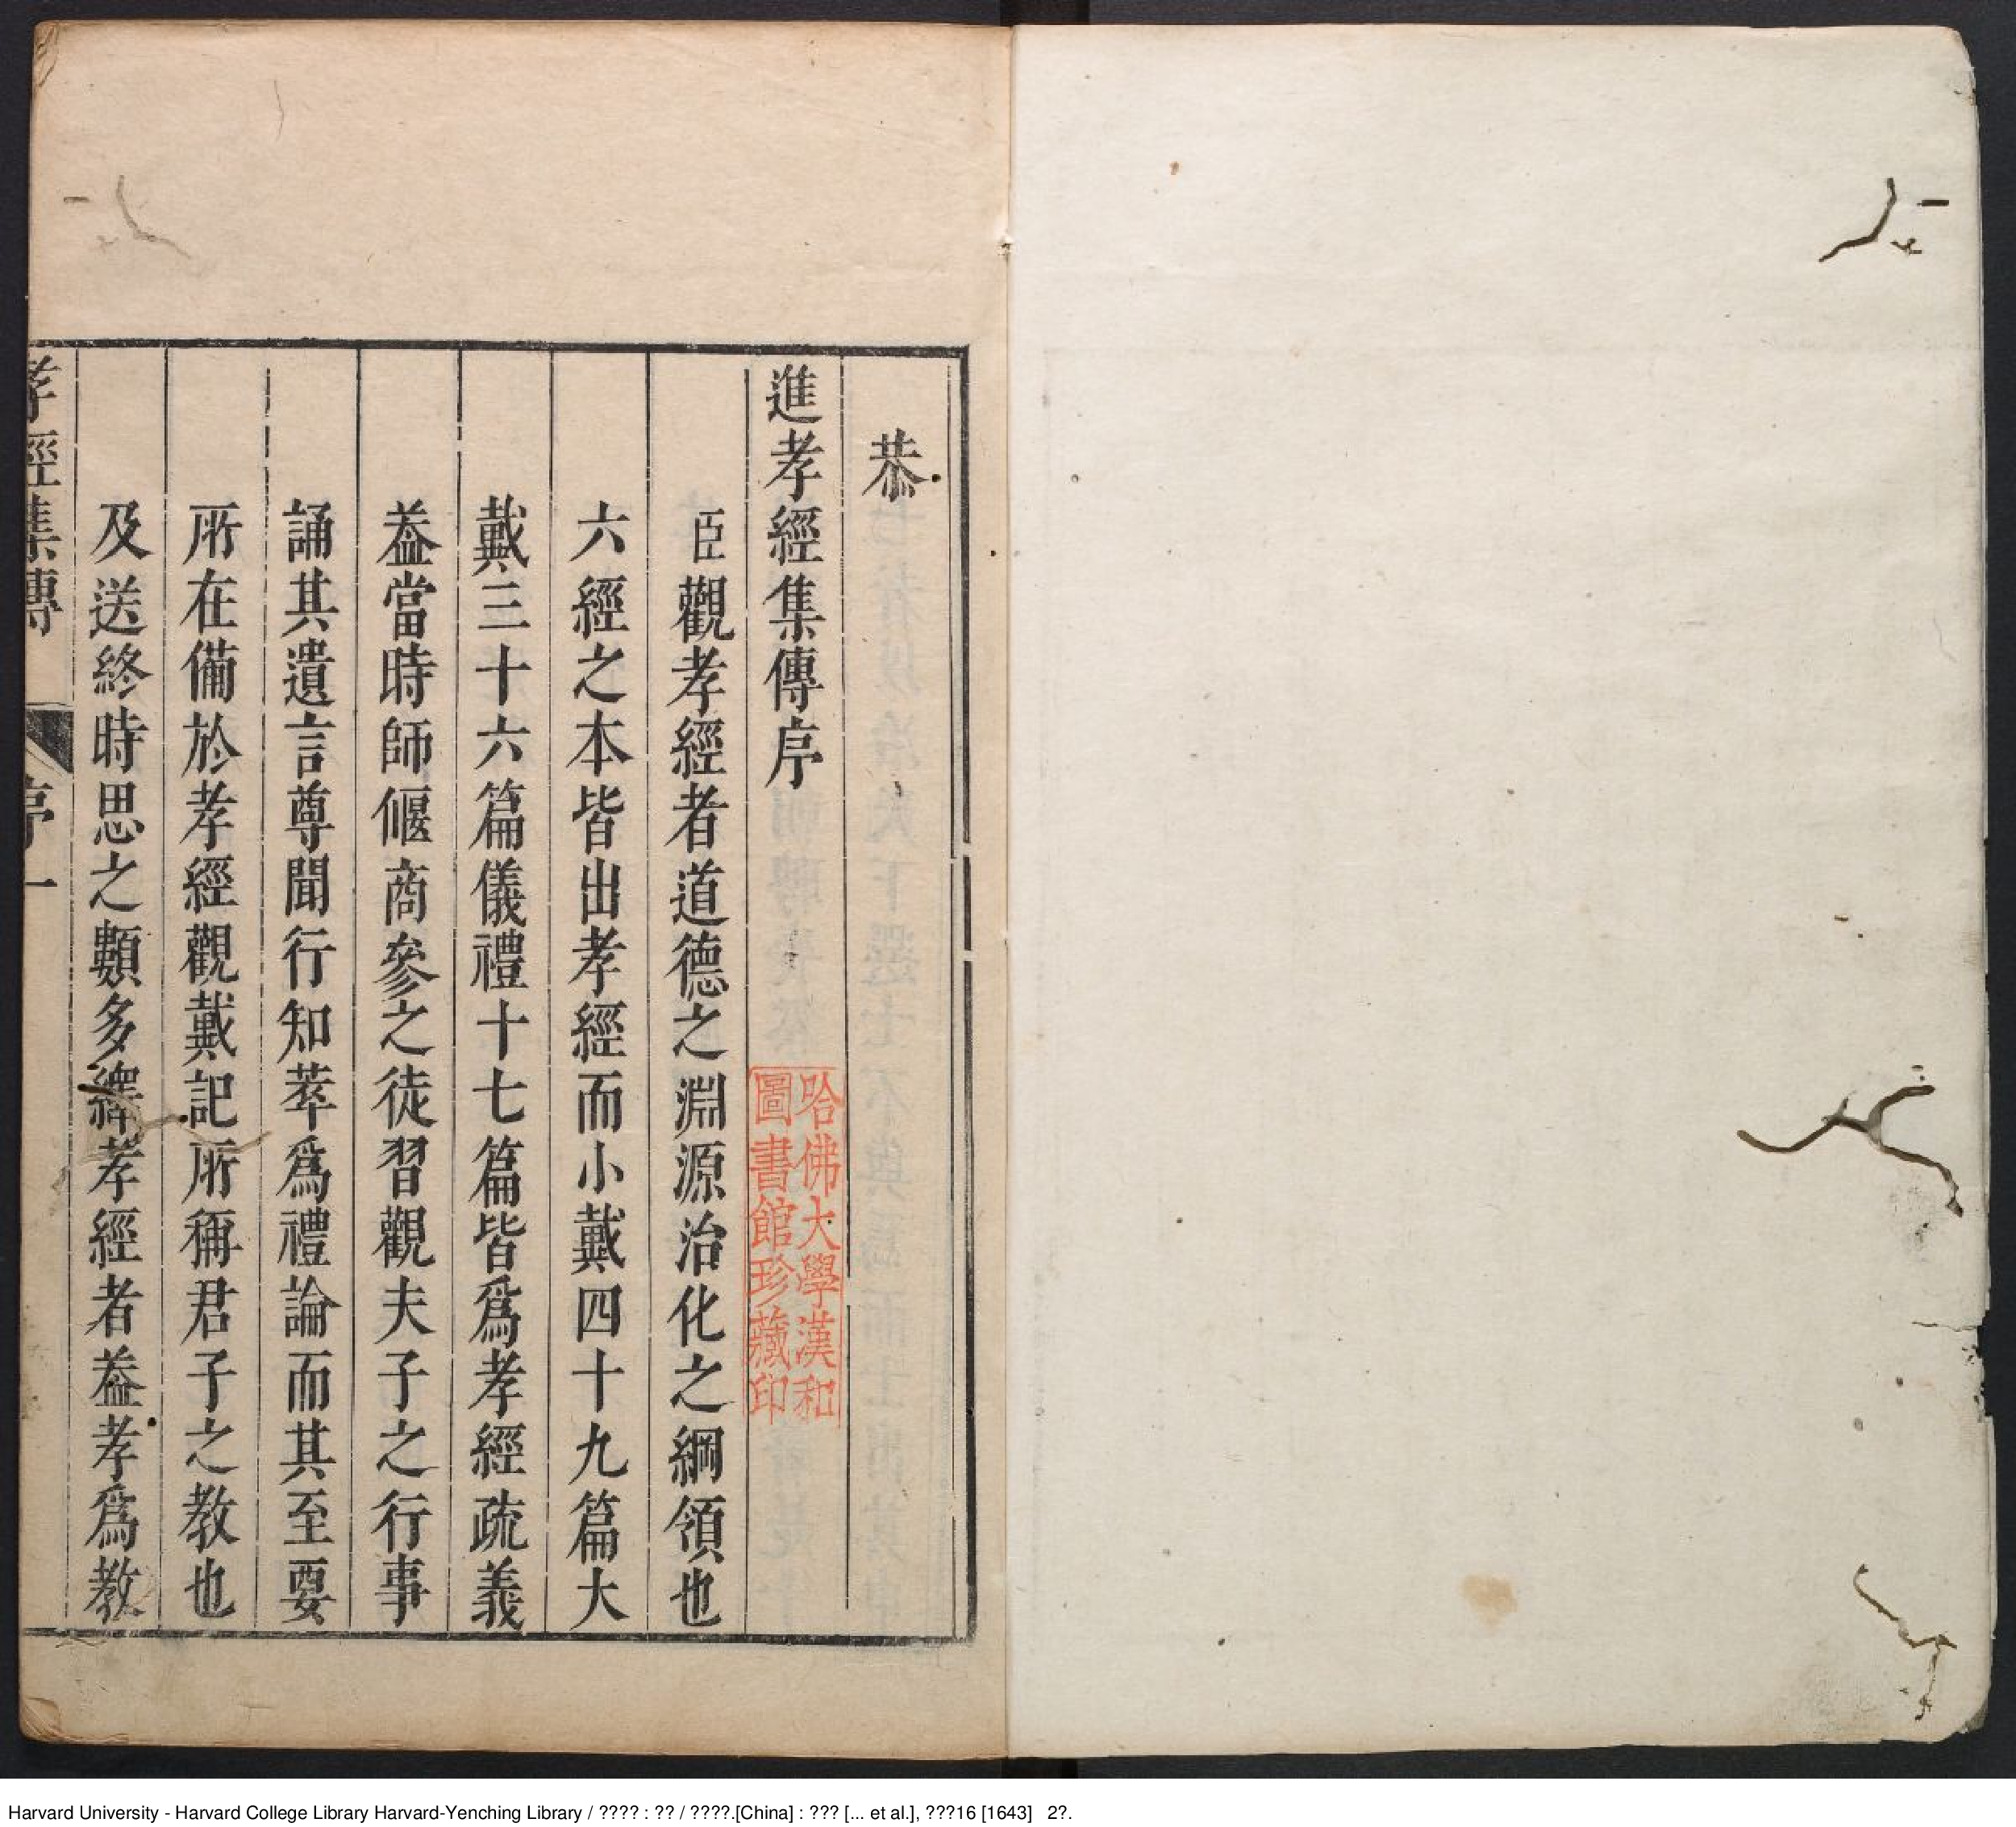 恭
進孝經集傳序
臣觀孝經者道德之淵源治化之綱領也
六經之本皆出孝經而小戴四十九篇大
戴三十六篇儀禮十七篇皆爲孝經疏義
葢當時師偃商參之徒習觀夫子之行事
誦其遺言尊聞行知萃爲禮論而其至要
所在備於孝經觀戴記所稱君子之教也
及送終時思之類多繹孝經者葢孝爲教
孝經集傳 序 一
哈佛大學漢和
圖書館珍藏印
Harvard University - Harvard College Library Harvard-Yenching Library / ???? : ?? / ????.[China] : ??? [... et al.], ???16 [1643] 2?.